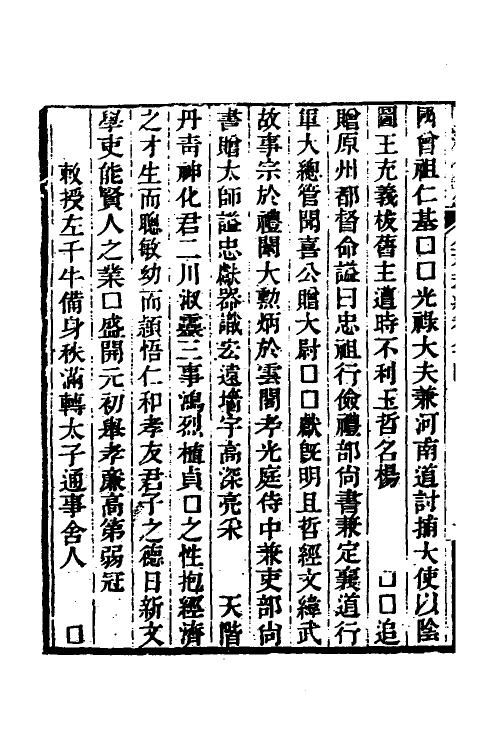 國曾祖仁基□□光祿大夫兼河南道討捕大使以陰
圖王充義枝舊主遭時不利玉哲名楊　　□□追
贈原州都督命謚曰忠祖行儉禮部尙書兼定襄道行
軍大總管聞喜公贈大尉□□獻旣明且哲經文緯武
故事宗於禮闈大勲炳於雲閣考光庭侍中兼吏部尙
書贈太師謚忠獻器識宏遠墻宇高深亮采　　天階
丹靑神化君二川淑靈三事鴻烈植貞□之性抱經濟
之才生而聰敏幼而穎悟仁和孝友君子之德日新文
學吏能賢人之業□盛開元初舉孝廉高第弱冠
敕授左千牛備身秩滿轉太子通事舍人　　□